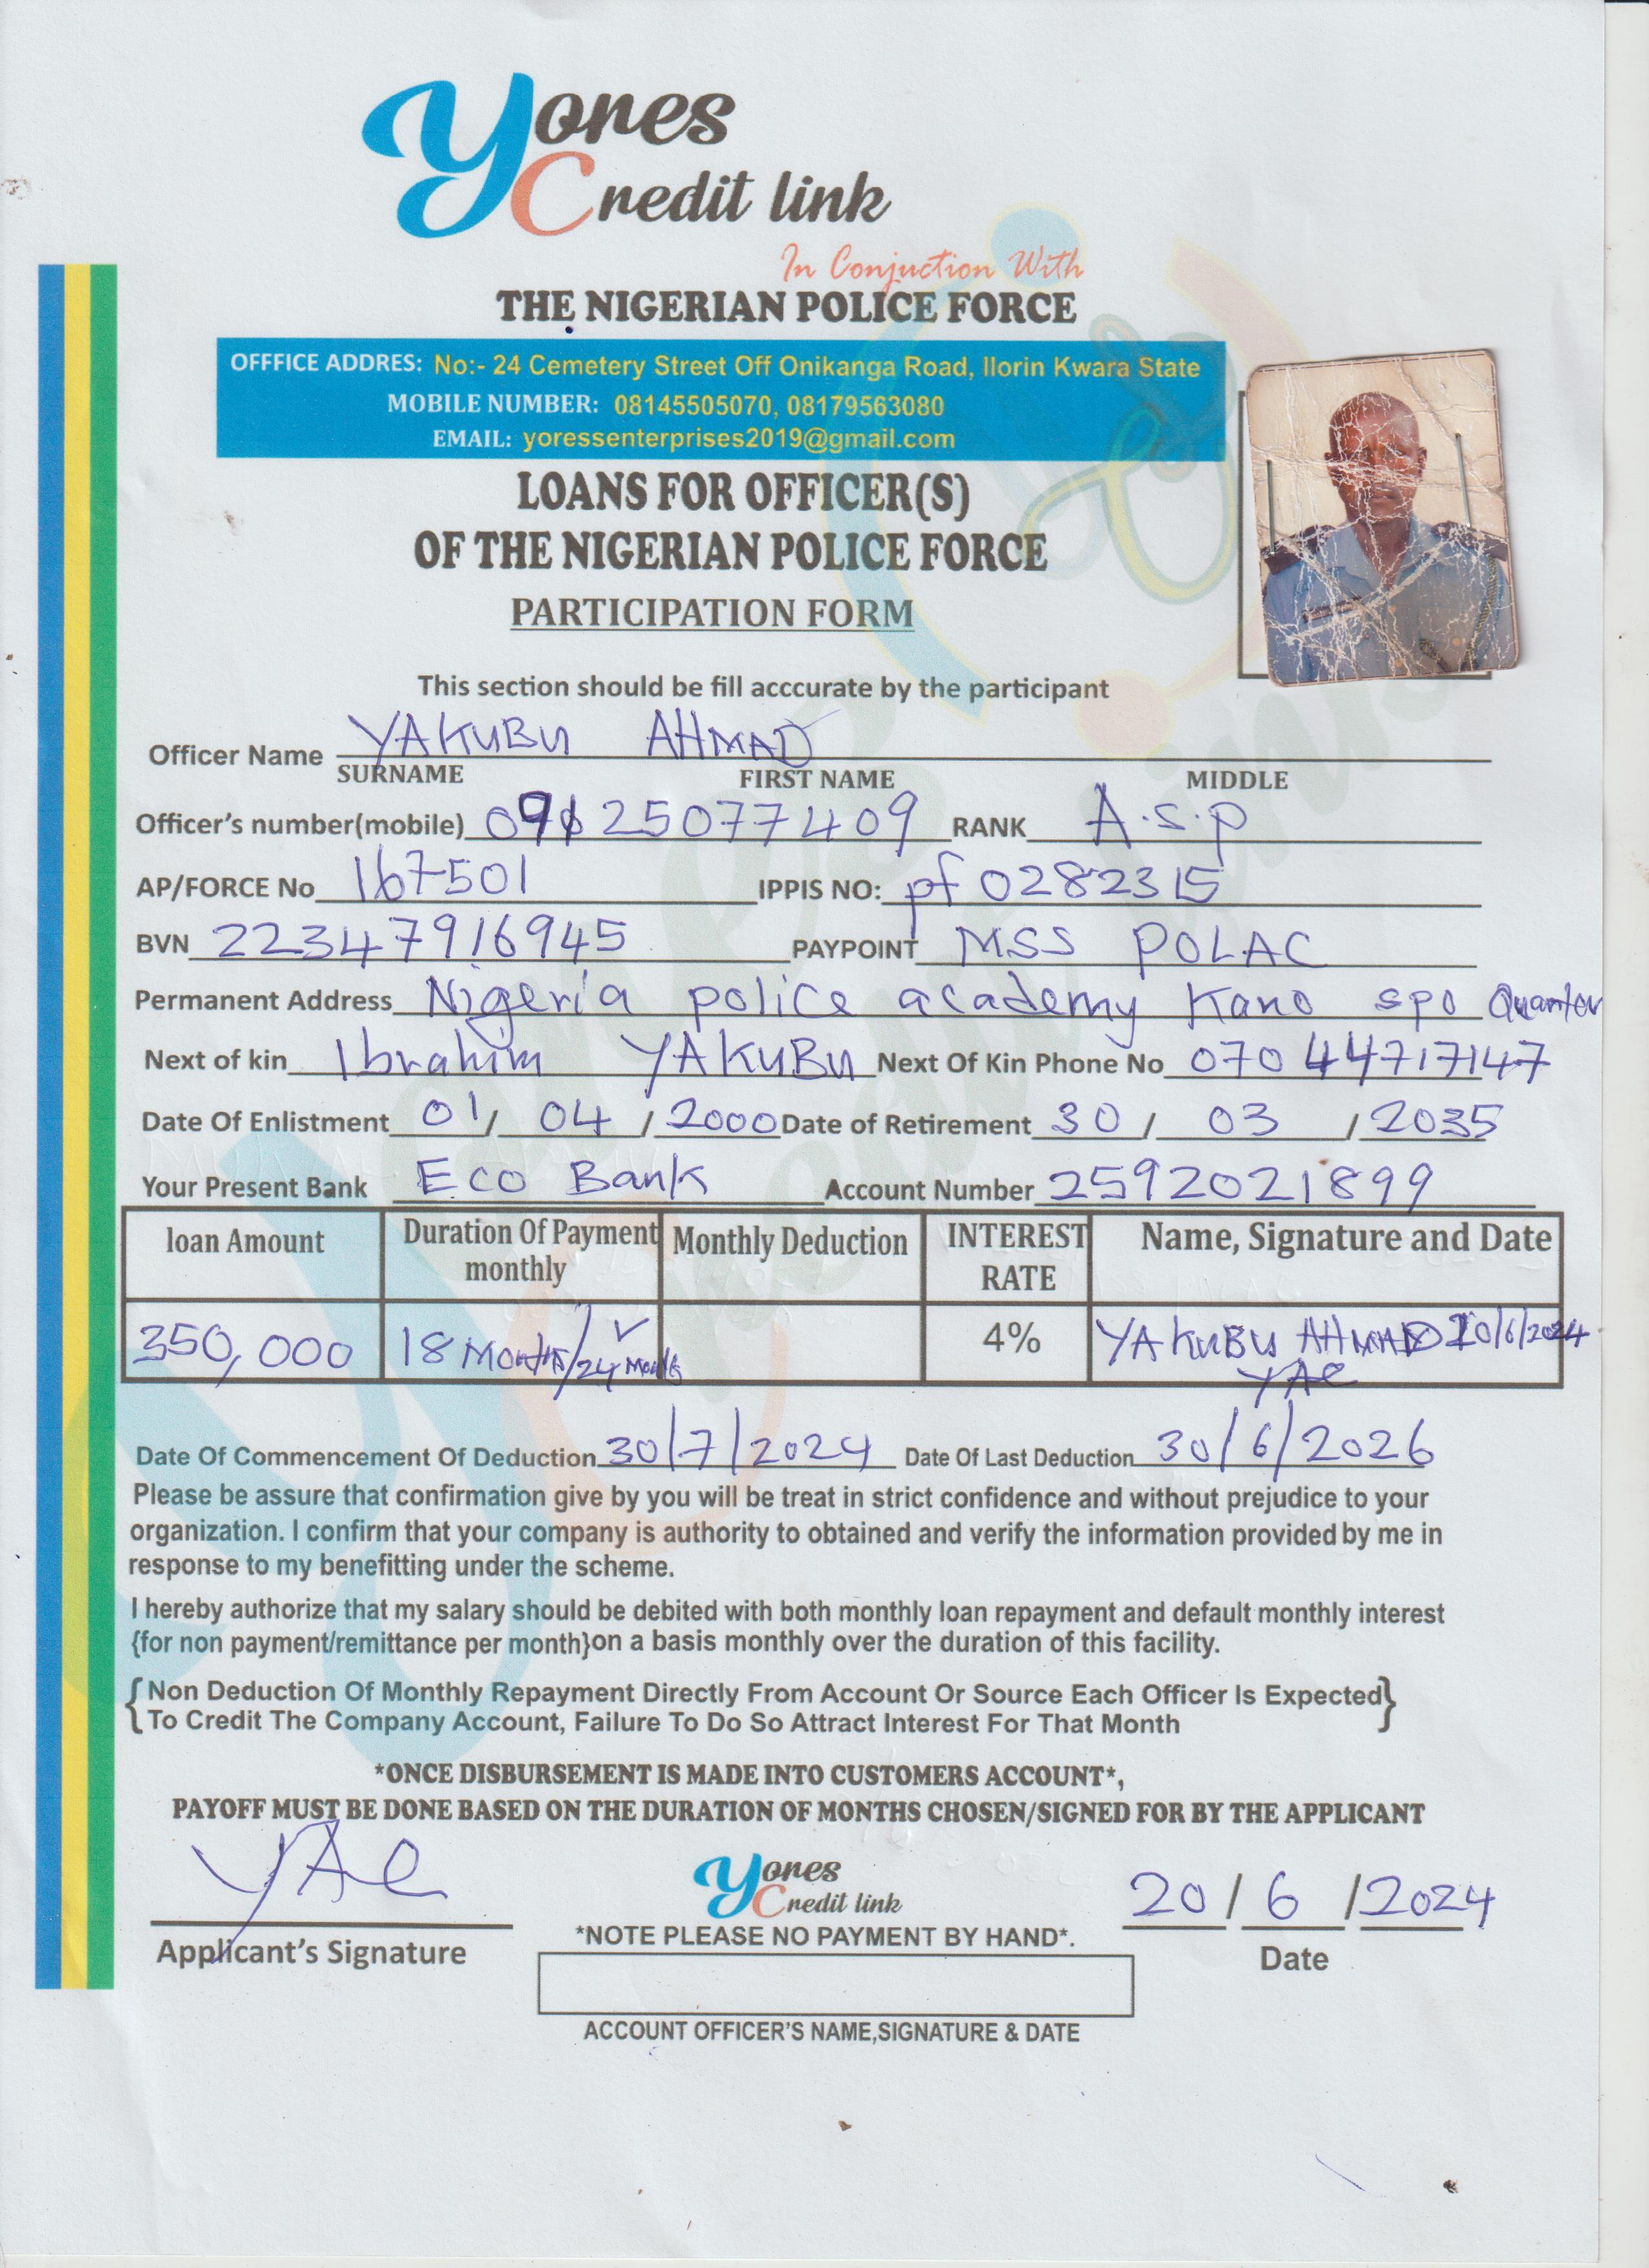 Yores
Credit link
In Conjuction With
THE NIGERIAN POLICE FORCE
OFFFICE ADDRES: No:- 24 Cemetery Street Off Onikanga Road, Ilorin Kwara State
MOBILE NUMBER: 08145505070, 08179563080
EMAIL: yoressenterprises2019@gmail.com
LOANS FOR OFFICER(S)
OF THE NIGERIAN POLICE FORCE
PARTICIPATION FORM
This section should be fill acccurate by the participant
Officer Name YAKUBU AHMAD
SURNAME FIRST NAME MIDDLE
Officer's number(mobile) RANK A.S.P
AP/FORCE No 167501 IPPIS NO: pf 0282315
BVN 22347916945 PAYPOINT MSS POLAC
Permanent Address Nigeria police academy Kano spo Quarter
Next of kin Ibrahim YAKUBU Next Of Kin Phone No 07044717147
Date Of Enlistment 01/ 04 / 2000 Date of Retirement 30 / 03 / 2035
Your Present Bank Eco Bank Account Number 2592021899
loan Amount Duration Of Payment monthly Monthly Deduction INTEREST RATE Name, Signature and Date
350,000 18 Months/24 Months 4% YAKUBU AHMAD 20/6/2024
YAC
Date Of Commencement Of Deduction 30/7/2024 Date Of Last Deduction 30/6/2026
Please be assure that confirmation give by you will be treat in strict confidence and without prejudice to your
organization. I confirm that your company is authority to obtained and verify the information provided by me in
response to my benefitting under the scheme.
I hereby authorize that my salary should be debited with both monthly loan repayment and default monthly interest
{for non payment/remittance per month}on a basis monthly over the duration of this facility.
{Non Deduction Of Monthly Repayment Directly From Account Or Source Each Officer Is Expected}
To Credit The Company Account, Failure To Do So Attract Interest For That Month
*ONCE DISBURSEMENT IS MADE INTO CUSTOMERS ACCOUNT*,
PAYOFF MUST BE DONE BASED ON THE DURATION OF MONTHS CHOSEN/SIGNED FOR BY THE APPLICANT
YAC
Yores
Credit link
20 / 6 / 2024
*NOTE PLEASE NO PAYMENT BY HAND*.
Applicant's Signature
Date
ACCOUNT OFFICER'S NAME,SIGNATURE & DATE